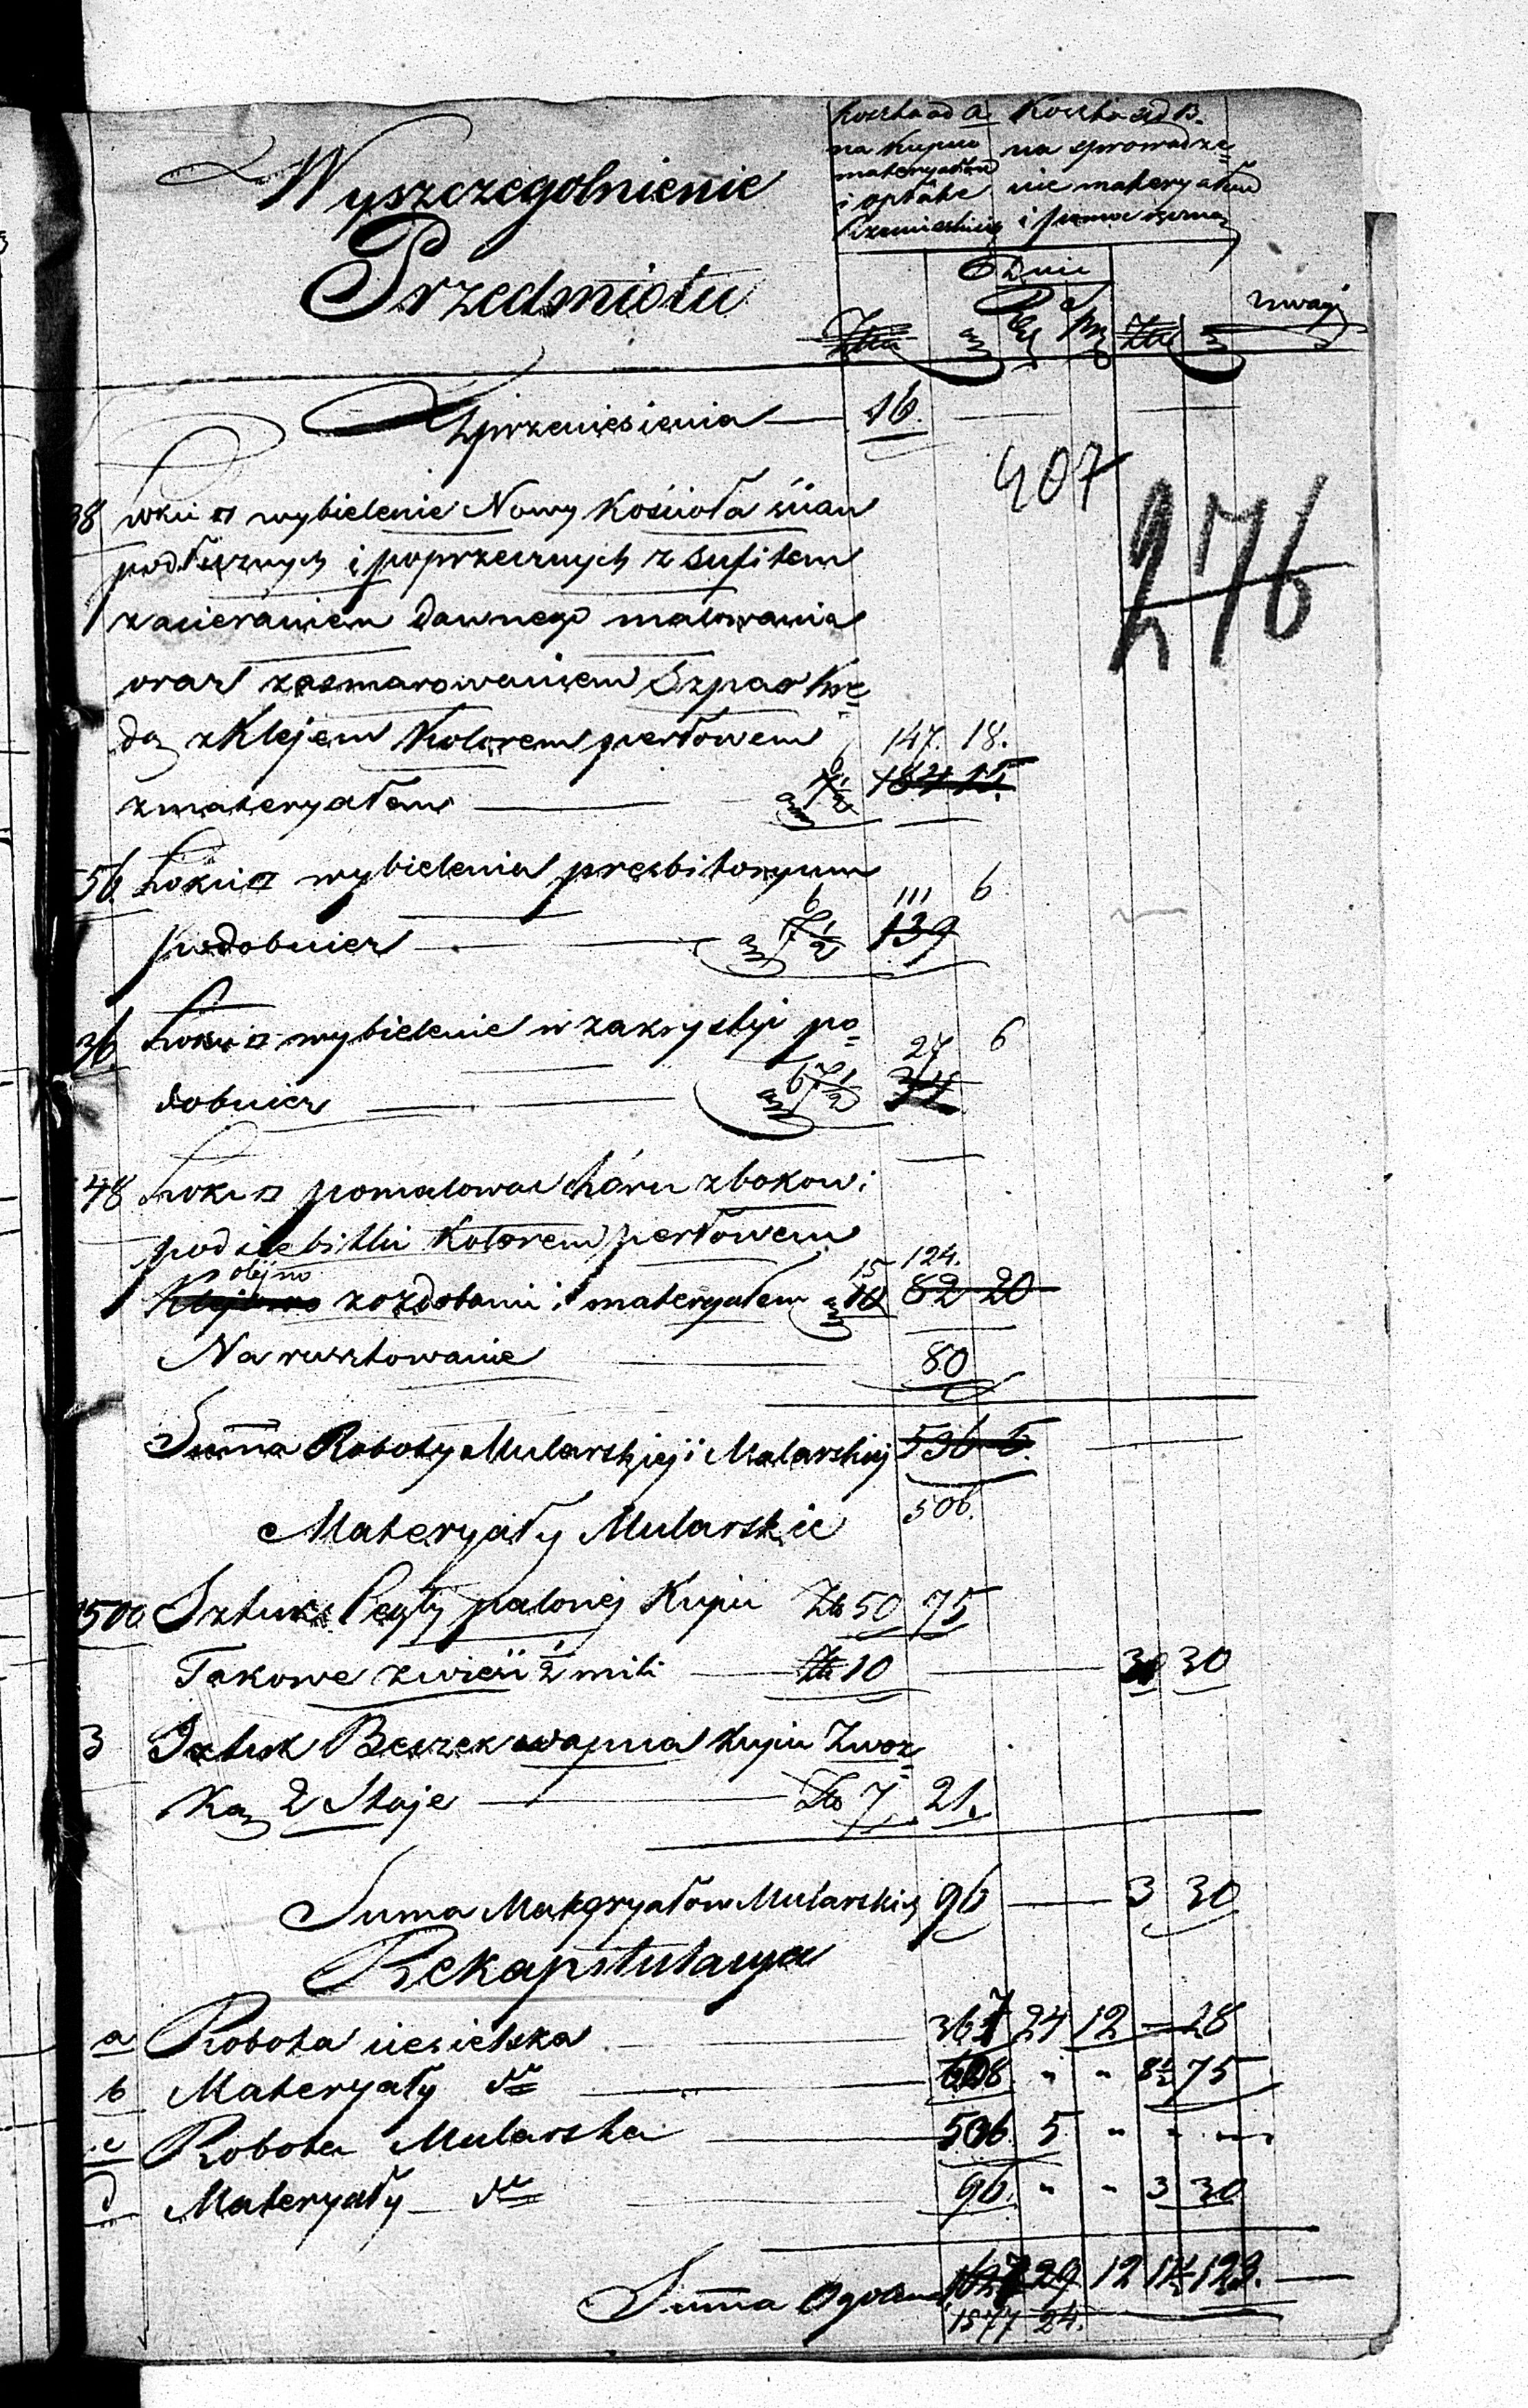 Wyszczegolnienie
Przedmiotu
Koszta ad A.
na Kupno
materyałów
i opłatę
Rzemieslnicą
Koszta ad B.
na sprowadze=
nie materyałów
i pomoc ręczną
Dnie
Złt gr Złt gr uwagi
Zprzeniesienia — 16.
407
276
38 łokci □ wybielenie Nawy Kościoła ścian
podłużnych i poprzecznych z sufitem
zacieraniem dawnego malowania
oraz zasmarowaniem Szpar kre=
dą z Klejem Kolorem perłowem 147. 18.
zmateryałem — a 6 7½ 184 15.
56. Łokci □ wybielenia presbitoryum 111 6
podobnież — a 6 7½ 139
36. Łokci □ wybielenie w zakrystyi po= 27 6
dobnież — a 6 7½ 34
48 Łokci □ pomalować chóru zbokow i
podsiebitki Kolorem perłowem 124.
olejno 15
materyałem a 10 82 20
Na rusztowanie — 80
Summa Roboty Mularskiej i Malarskiej 536 5.
506.
Materyały Mularskie
1500 Sztuk Cegły palonej Kupić Złt 50 75
Takowe zwieść ½ mili — Złt 10 — 3 30
3 Sztuk Beczek wapna kupić Zwoz=
Ką 2 Staje — Złt 7. 21.
Suma Materyałów Mularskich 96 — 3 30
Rekapitulacya
a Robota ciesielska — 367 24 12 — 18
b Materyały dto — 608 " " 8½ 75
c Robota Mularska — 506 5 " " "
d Materyały dto — 96. " " 3 30
Summa Ogólna 29 12 11½ 123. —
1577 24.